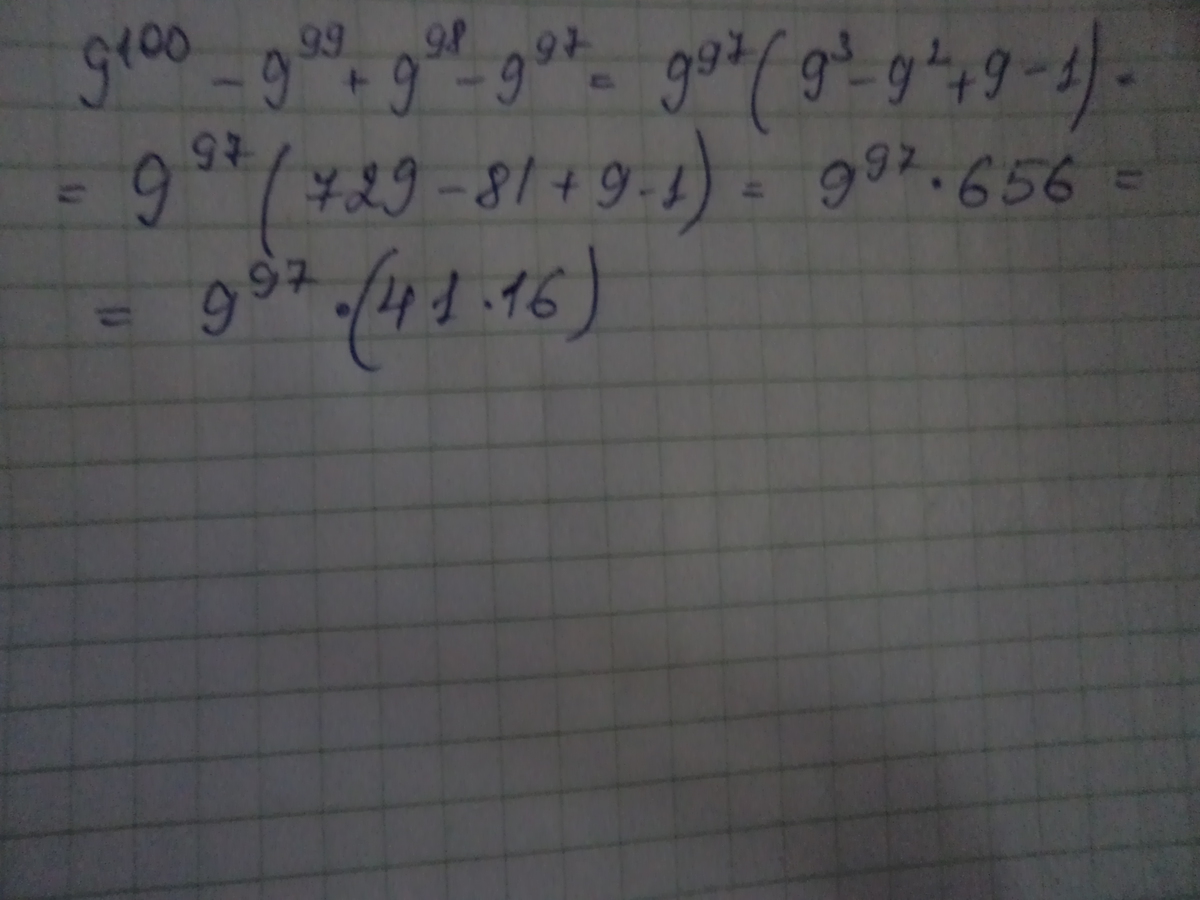 9¹⁰⁰ - 9⁹⁹ + 9⁹⁸ - 9⁹⁷ = 9⁹⁷(9³ - 9² + 9 - 1) =
= 9⁹⁷(729 - 81 + 9 - 1) = 9⁹⁷ · 656 =
= 9⁹⁷ · (41 · 16)